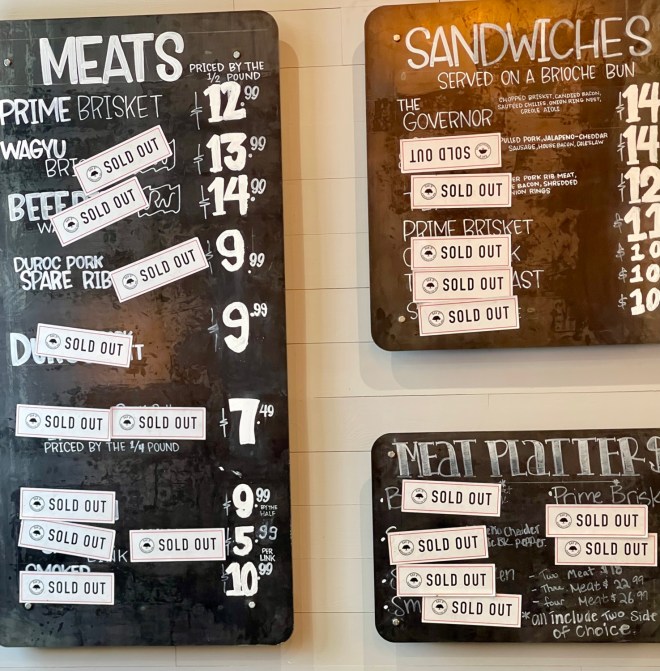 MEATS
PRICED BY THE
1/2 POUND
PRIME BRISKET $12.99
WAGYU $13.99
SOLD OUT
BEEF $14.99
SOLD OUT
DUROC PORK $9.99
SPARE RIB
SOLD OUT
$9.99
SOLD OUT
SOLD OUT SOLD OUT $7.49
PRICED BY THE 1/4 POUND
SOLD OUT 9.99
BY THE
HALF
SOLD OUT SOLD OUT 5.99
PER
LINK
SMOKED
SOLD OUT 10.99
SANDWICHES
SERVED ON A BRIOCHE BUN
THE
GOVERNOR
CHOPPED BRISKET, CANDIED BACON,
SAUTEED CHILIES, ONION RING NEST,
CREOLE AIOLI
$14
SOLD OUT
PULLED PORK, JALAPENO-CHEDDAR
SAUSAGE, HOUSE BACON, COLESLAW
$14
SOLD OUT
PORK RIB MEAT,
BACON, SHREDDED
ONION RINGS
$12
PRIME BRISKET $11
SOLD OUT $10
SOLD OUT $10
SOLD OUT $10
MEAT PLATTERS
SOLD OUT
Prime Brisk
SOLD OUT
SOLD OUT
Cheddar
SOLD OUT
SOLD OUT
- Two Meat $18
- Three Meat $22.99
- four Meat $26.99
SOLD OUT
*all include Two Side
of Choice.